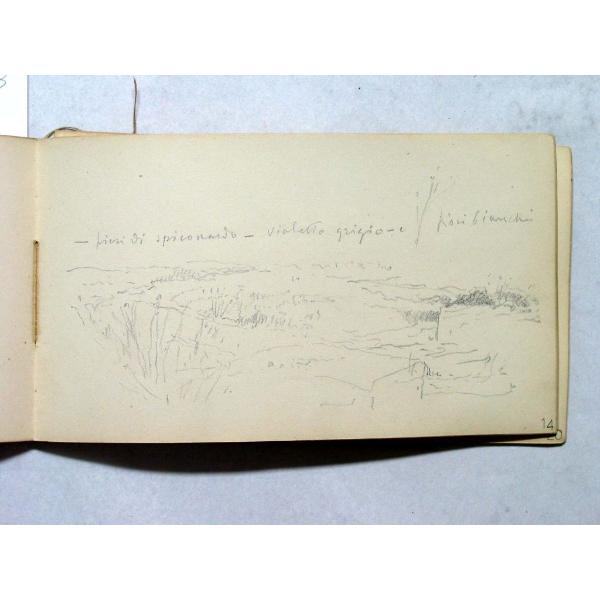 – fiori di spiconardo – violetto grigio – e fiori bianchi
14
20